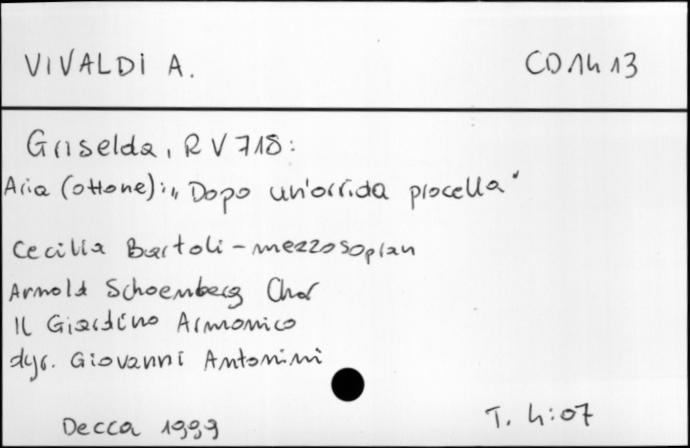 VIVALDI A. CD 1413
Griselda, RV 718:
Aria (Ottone): „Dopo un'orrida procella"
Cecilia Bartoli - mezzosopran
Arnold Schoenberg Chor
Il Giardino Armonico
dyr. Giovanni Antonini
Decca 1999 T. 4:07